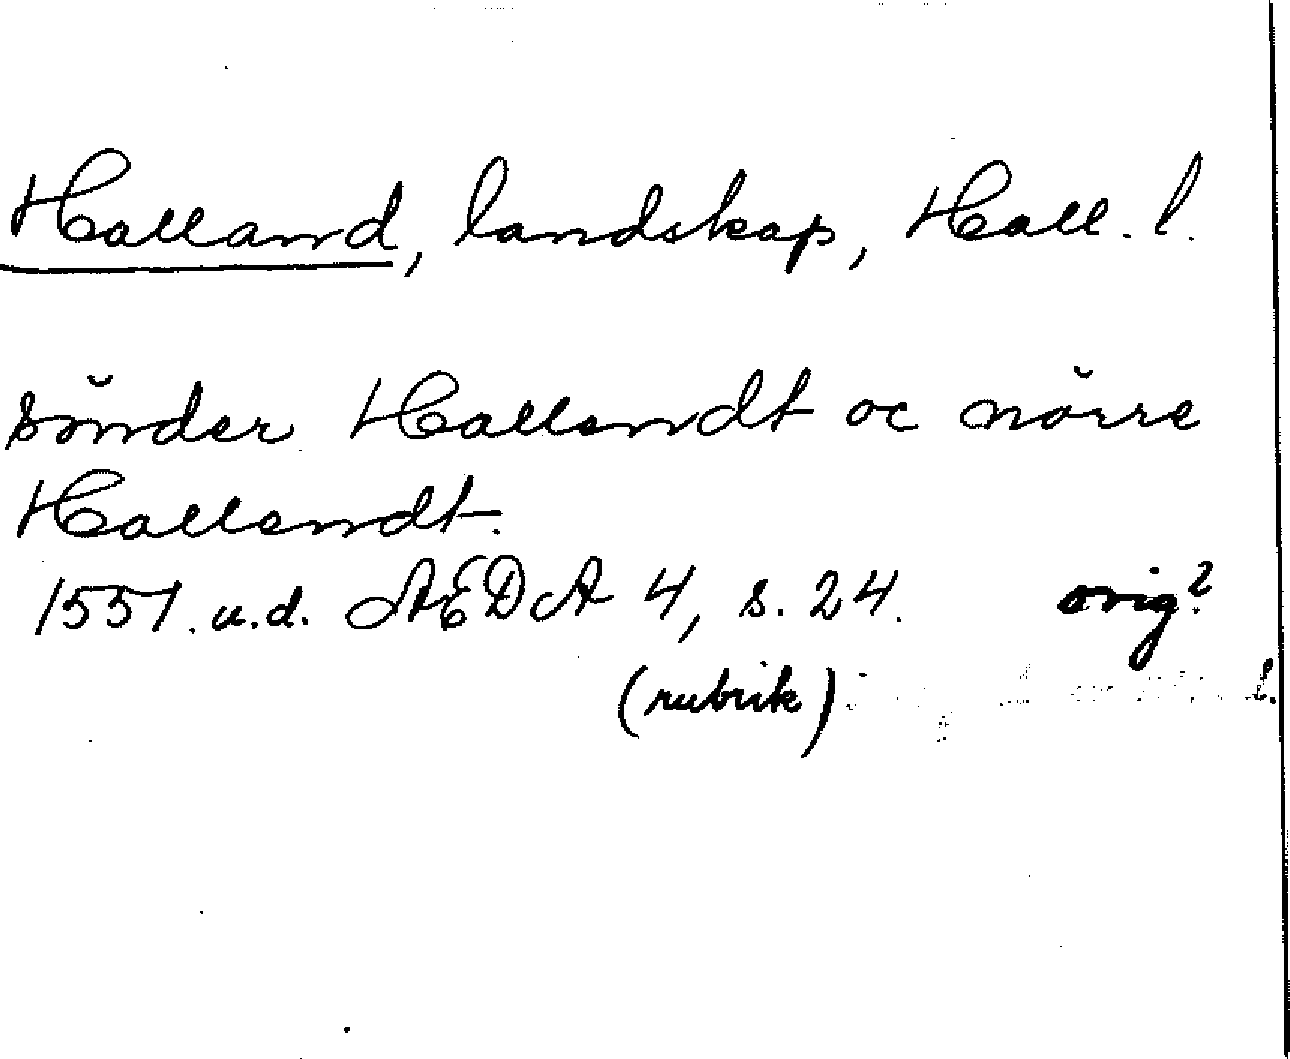 Halland, landskap, Hall. l.
sŏnder Hallandt oc nŏrre
Hallandt.
1551. u.d. AEDA 4, s. 24. orig?
(rubrik)